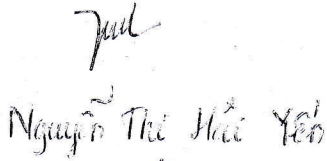 Nguyễn Thị Hải Yến